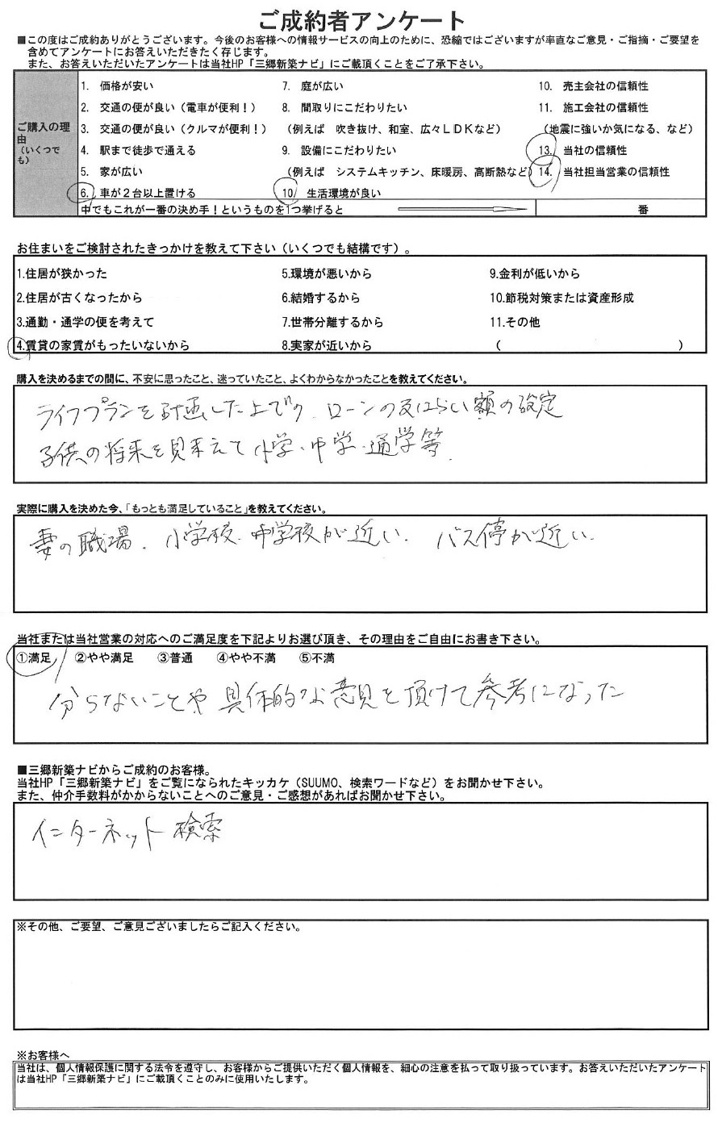 ご成約者アンケート
■この度はご成約ありがとうございます。今後のお客様への情報サービスの向上のために、恐縮ではございますが率直なご意見・ご指摘・ご要望を
含めてアンケートにお答えいただきたく存じます。
また、お答えいただいたアンケートは当社HP「三郷新築ナビ」にご載頂くことをご了承下さい。
ご購入の理由
(いくつでも)
1. 価格が安い 7. 庭が広い 10. 売主会社の信頼性
2. 交通の便が良い(電車が便利!) 8. 間取りにこだわりたい 11. 施工会社の信頼性
3. 交通の便が良い(クルマが便利!) (例えば 吹き抜け、和室、広々LDKなど) (地震に強いか気になる、など)
4. 駅まで徒歩で通える 9. 設備にこだわりたい 13. 当社の信頼性
5. 家が広い (例えば システムキッチン、床暖房、高断熱など) 14. 当社担当営業の信頼性
6. 車が2台以上置ける 10. 生活環境が良い
中でもこれが一番の決め手!というものを1つ挙げると 番
お住まいをご検討されたきっかけを教えて下さい(いくつでも結構です)。
1.住居が狭かった 5.環境が悪いから 9.金利が低いから
2.住居が古くなったから 6.結婚するから 10.節税対策または資産形成
3.通勤・通学の便を考えて 7.世帯分離するから 11.その他
4.賃貸の家賃がもったいないから 8.実家が近いから ( )
購入を決めるまでの間に、不安に思ったこと、迷っていたこと、よくわからなかったことを教えてください。
ライフプランを計画した上での、ローンの支払い額の設定
子供の将来を見据えて小学・中学・通学等.
実際に購入を決めた今、「もっとも満足していること」を教えてください。
妻の職場、小学校、中学校が近い. バス停が近い.
当社または当社営業の対応へのご満足度を下記よりお選び頂き、その理由をご自由にお書き下さい。
①満足 ②やや満足 ③普通 ④やや不満 ⑤不満
分らないことや具体的な意見を頂けて参考になった
■三郷新築ナビからご成約のお客様。
当社HP「三郷新築ナビ」をご覧になられたキッカケ(SUUMO、検索ワードなど)をお聞かせ下さい。
また、仲介手数料がかからないことへのご意見・ご感想があればお聞かせ下さい。
インターネット検索
※その他、ご要望、ご意見ございましたらご記入ください。
※お客様へ
当社は、個人情報保護に関する法令を遵守し、お客様からご提供いただく個人情報を、細心の注意を払って取り扱っています。お答えいただいたアンケート
は当社HP「三郷新築ナビ」にご載頂くことのみに使用いたします。